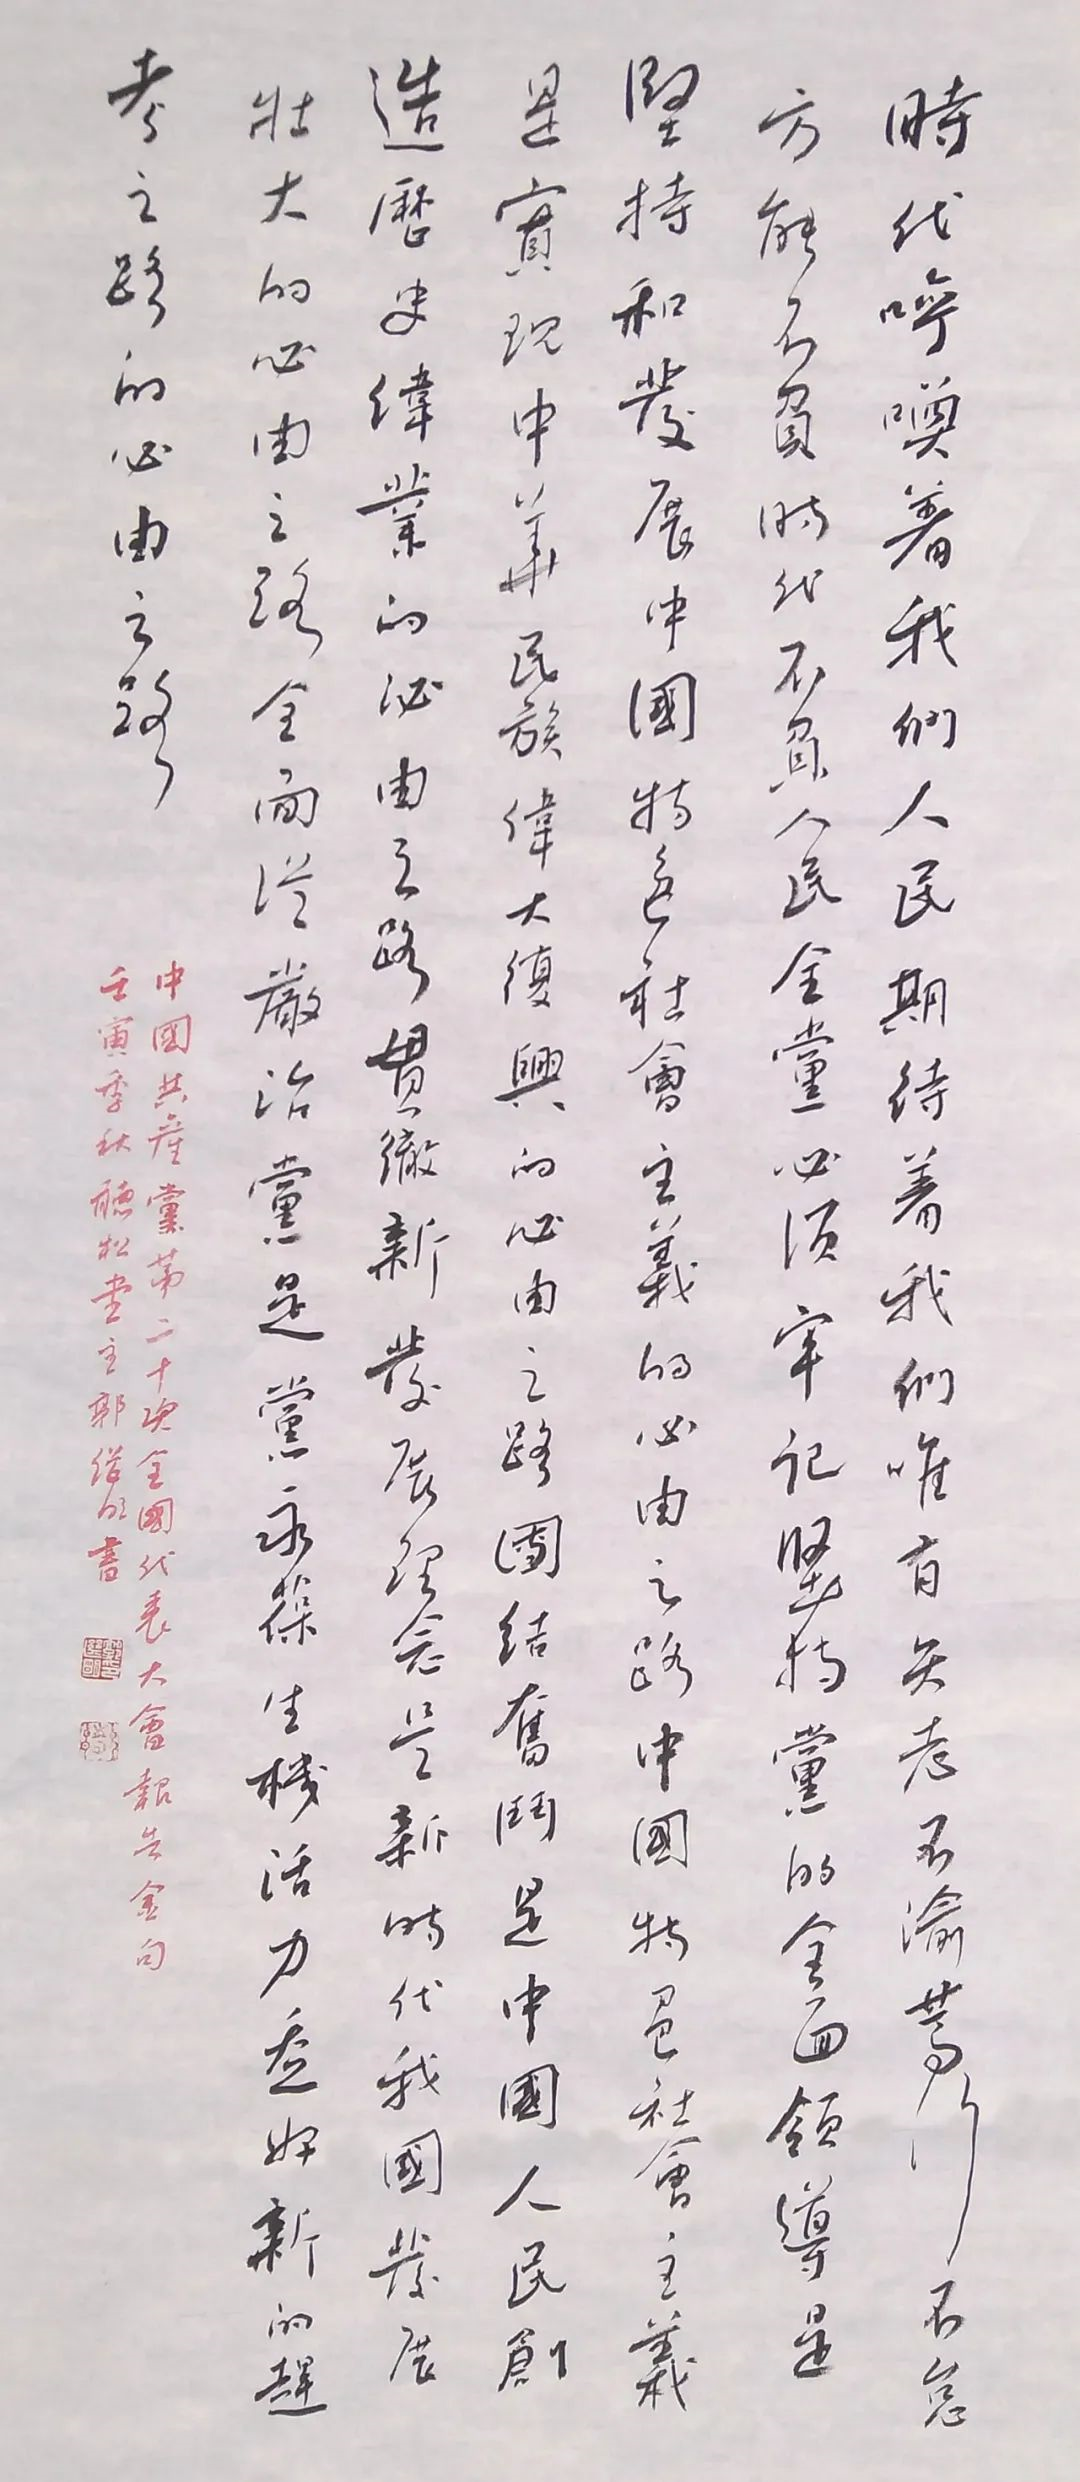 時代呼喚着我們人民期待着我們唯有矢志不渝篤行不怠
方能不負時代不負人民全黨必須牢記堅持黨的全面領導是
堅持和發展中國特色社會主義的必由之路中國特色社會主義
是實現中華民族偉大復興的必由之路團結奮鬥是中國人民創
造歷史偉業的必由之路貫徹新發展理念是新時代我國發展
壯大的必由之路全面從嚴治黨是黨永葆生機活力走好新的趕
考之路的必由之路
中國共產黨第二十次全國代表大會報告金句
壬寅季秋聽松堂主郭 明書